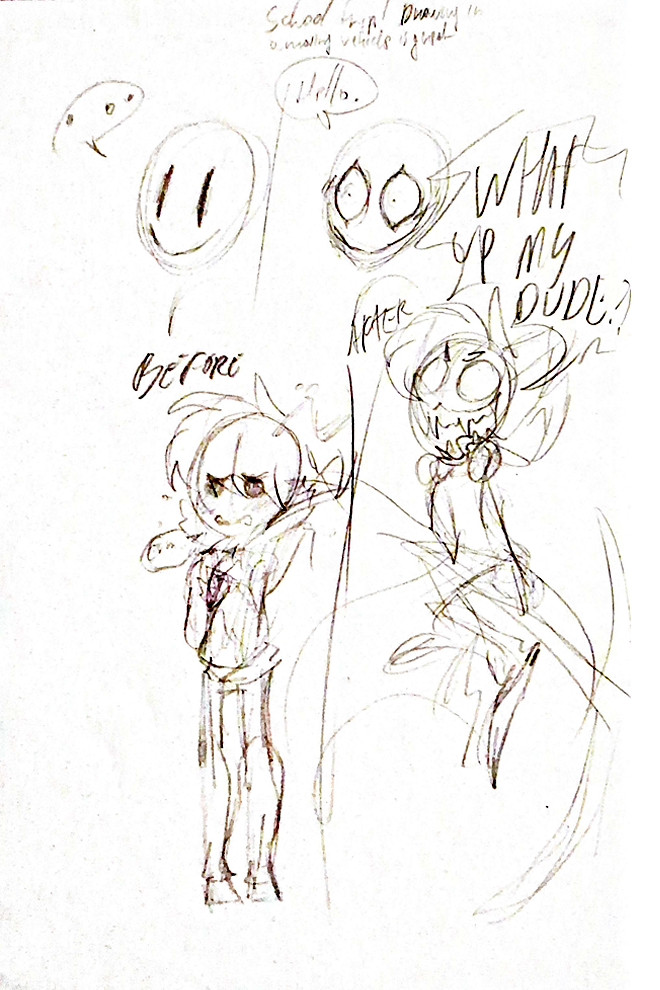 School trip! Drawing in
a moving vehicle is great
...
Hello.
WHAT
UP MY
DUDE?
BEFORE
AFTER